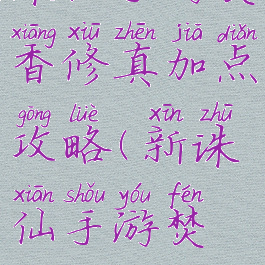 xiāng xiū zhēn jiā diǎn
香修真加点
gōng lüè xīn zhū
攻略(新诛
xiān shǒu yóu fén
仙手游焚